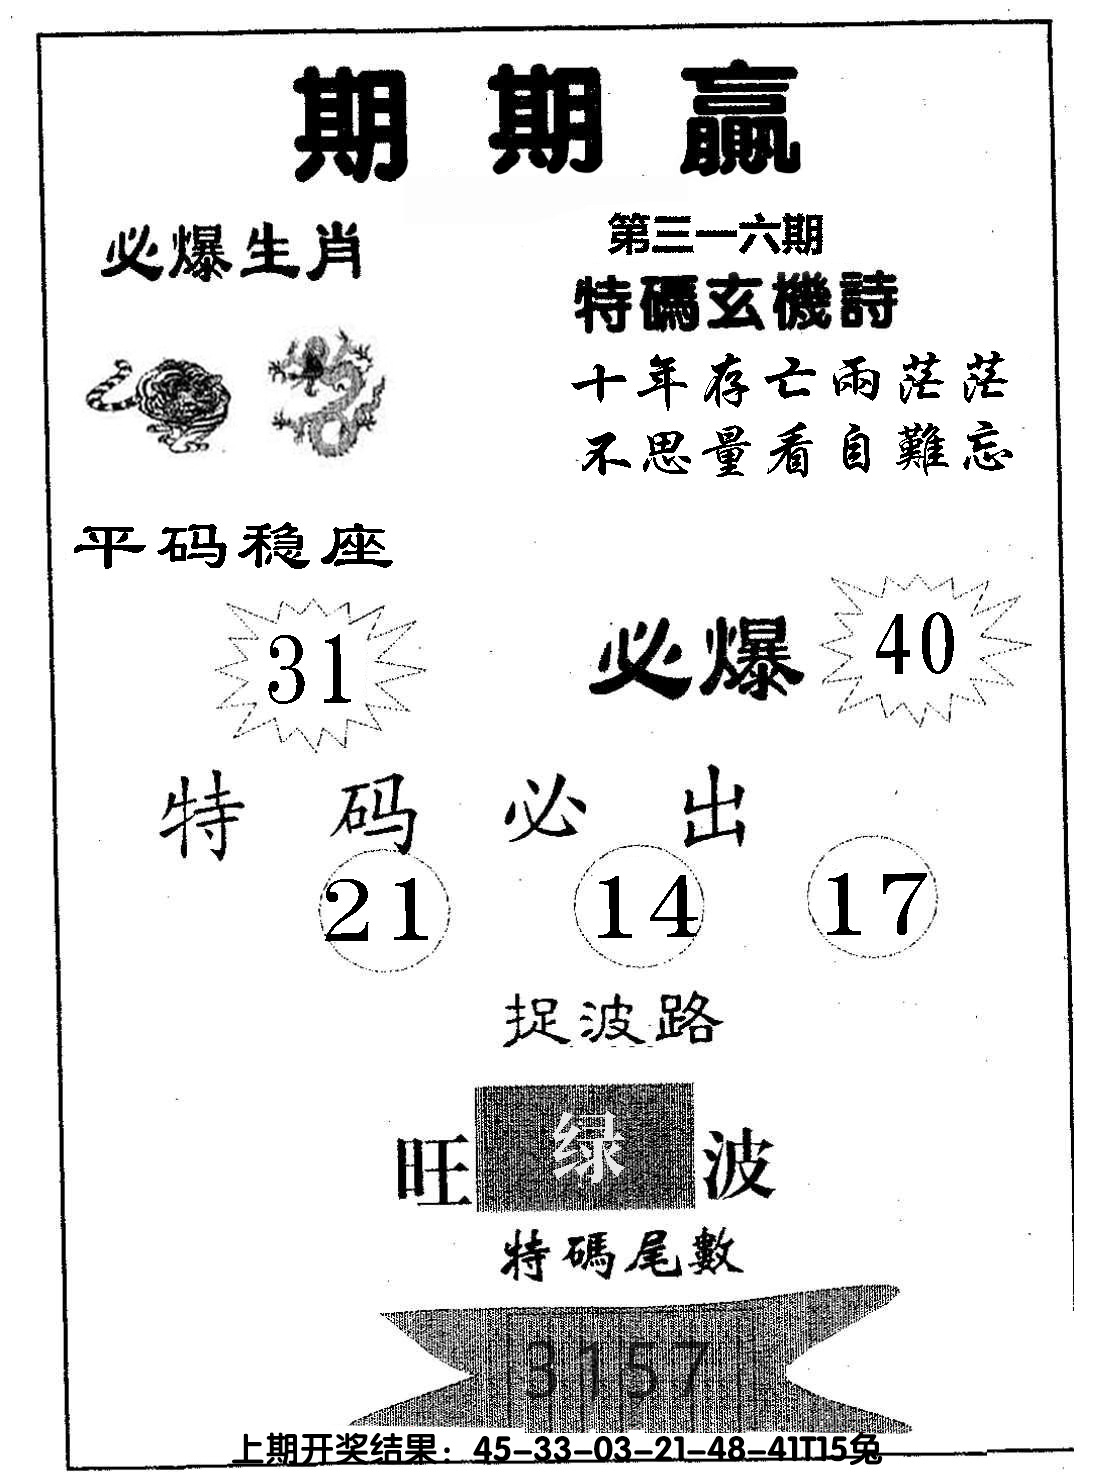 期期赢
必爆生肖
第三一六期
特碼玄機詩
十年存亡兩茫茫
不思量看自難忘
平码稳座
31
必爆 40
特码必出
21 14 17
捉波路
旺绿波
特碼尾數
3157
上期开奖结果：45-33-03-21-48-41T15兔